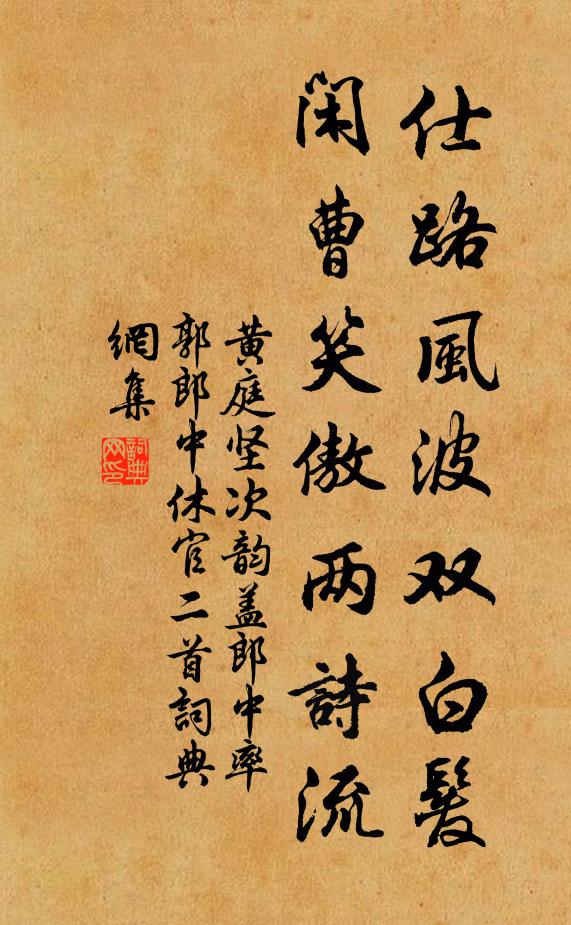 仕路風波双白髮
閑曹笑傲两詩流
黄庭坚次韵盖郎中率
郭郎中休官二首詞典
網集
詞典
网印